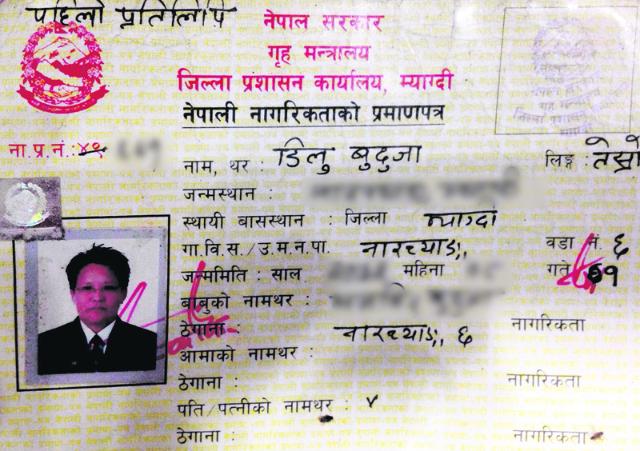 पहिलो प्रतिलिपि
नेपाल सरकार
गृह मन्त्रालय
जिल्ला प्रशासन कार्यालय, म्याग्दी
नेपाली नागरिकताको प्रमाणपत्र
ना.प्र.नं.: ४१
नाम, थर : डिलु बुदुजा लिङ्ग तेस्रो
जन्मस्थान :
स्थायी बासस्थान : जिल्ला म्याग्दी
गा.वि.स./उ.म.न.पा. नारच्याङ, वडा नं. ६
जन्ममिति : साल महिना गते
बाबुको नामथर :
ठेगाना : नारच्याङ, ६ नागरिकता
आमाको नामथर :
ठेगाना : नागरिकता
पति/पत्नीको नामथर :
ठेगाना : नागरिकता